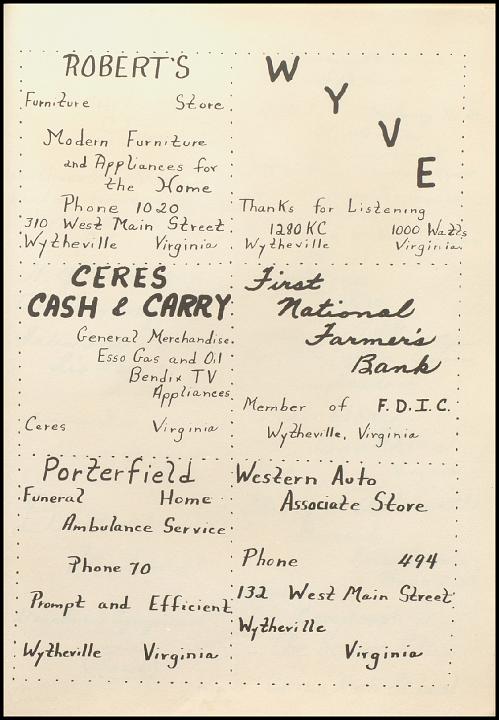 ROBERT'S
Furniture Store
Modern Furniture
and Appliances for
the Home
Phone 1020
310 West Main Street
Wytheville Virginia
W
Y
V
E
Thanks for Listening
1280 KC 1000 Watts
Wytheville Virginia
CERES
CASH & CARRY
General Merchandise
Esso Gas and Oil
Bendix TV
Appliances
Ceres Virginia
First
National
Farmer's
Bank
Member of F.D.I.C.
Wytheville, Virginia
Porterfield
Funeral Home
Ambulance Service
Phone 70
Prompt and Efficient
Wytheville Virginia
Western Auto
Associate Store
Phone 494
132 West Main Street
Wytheville
Virginia